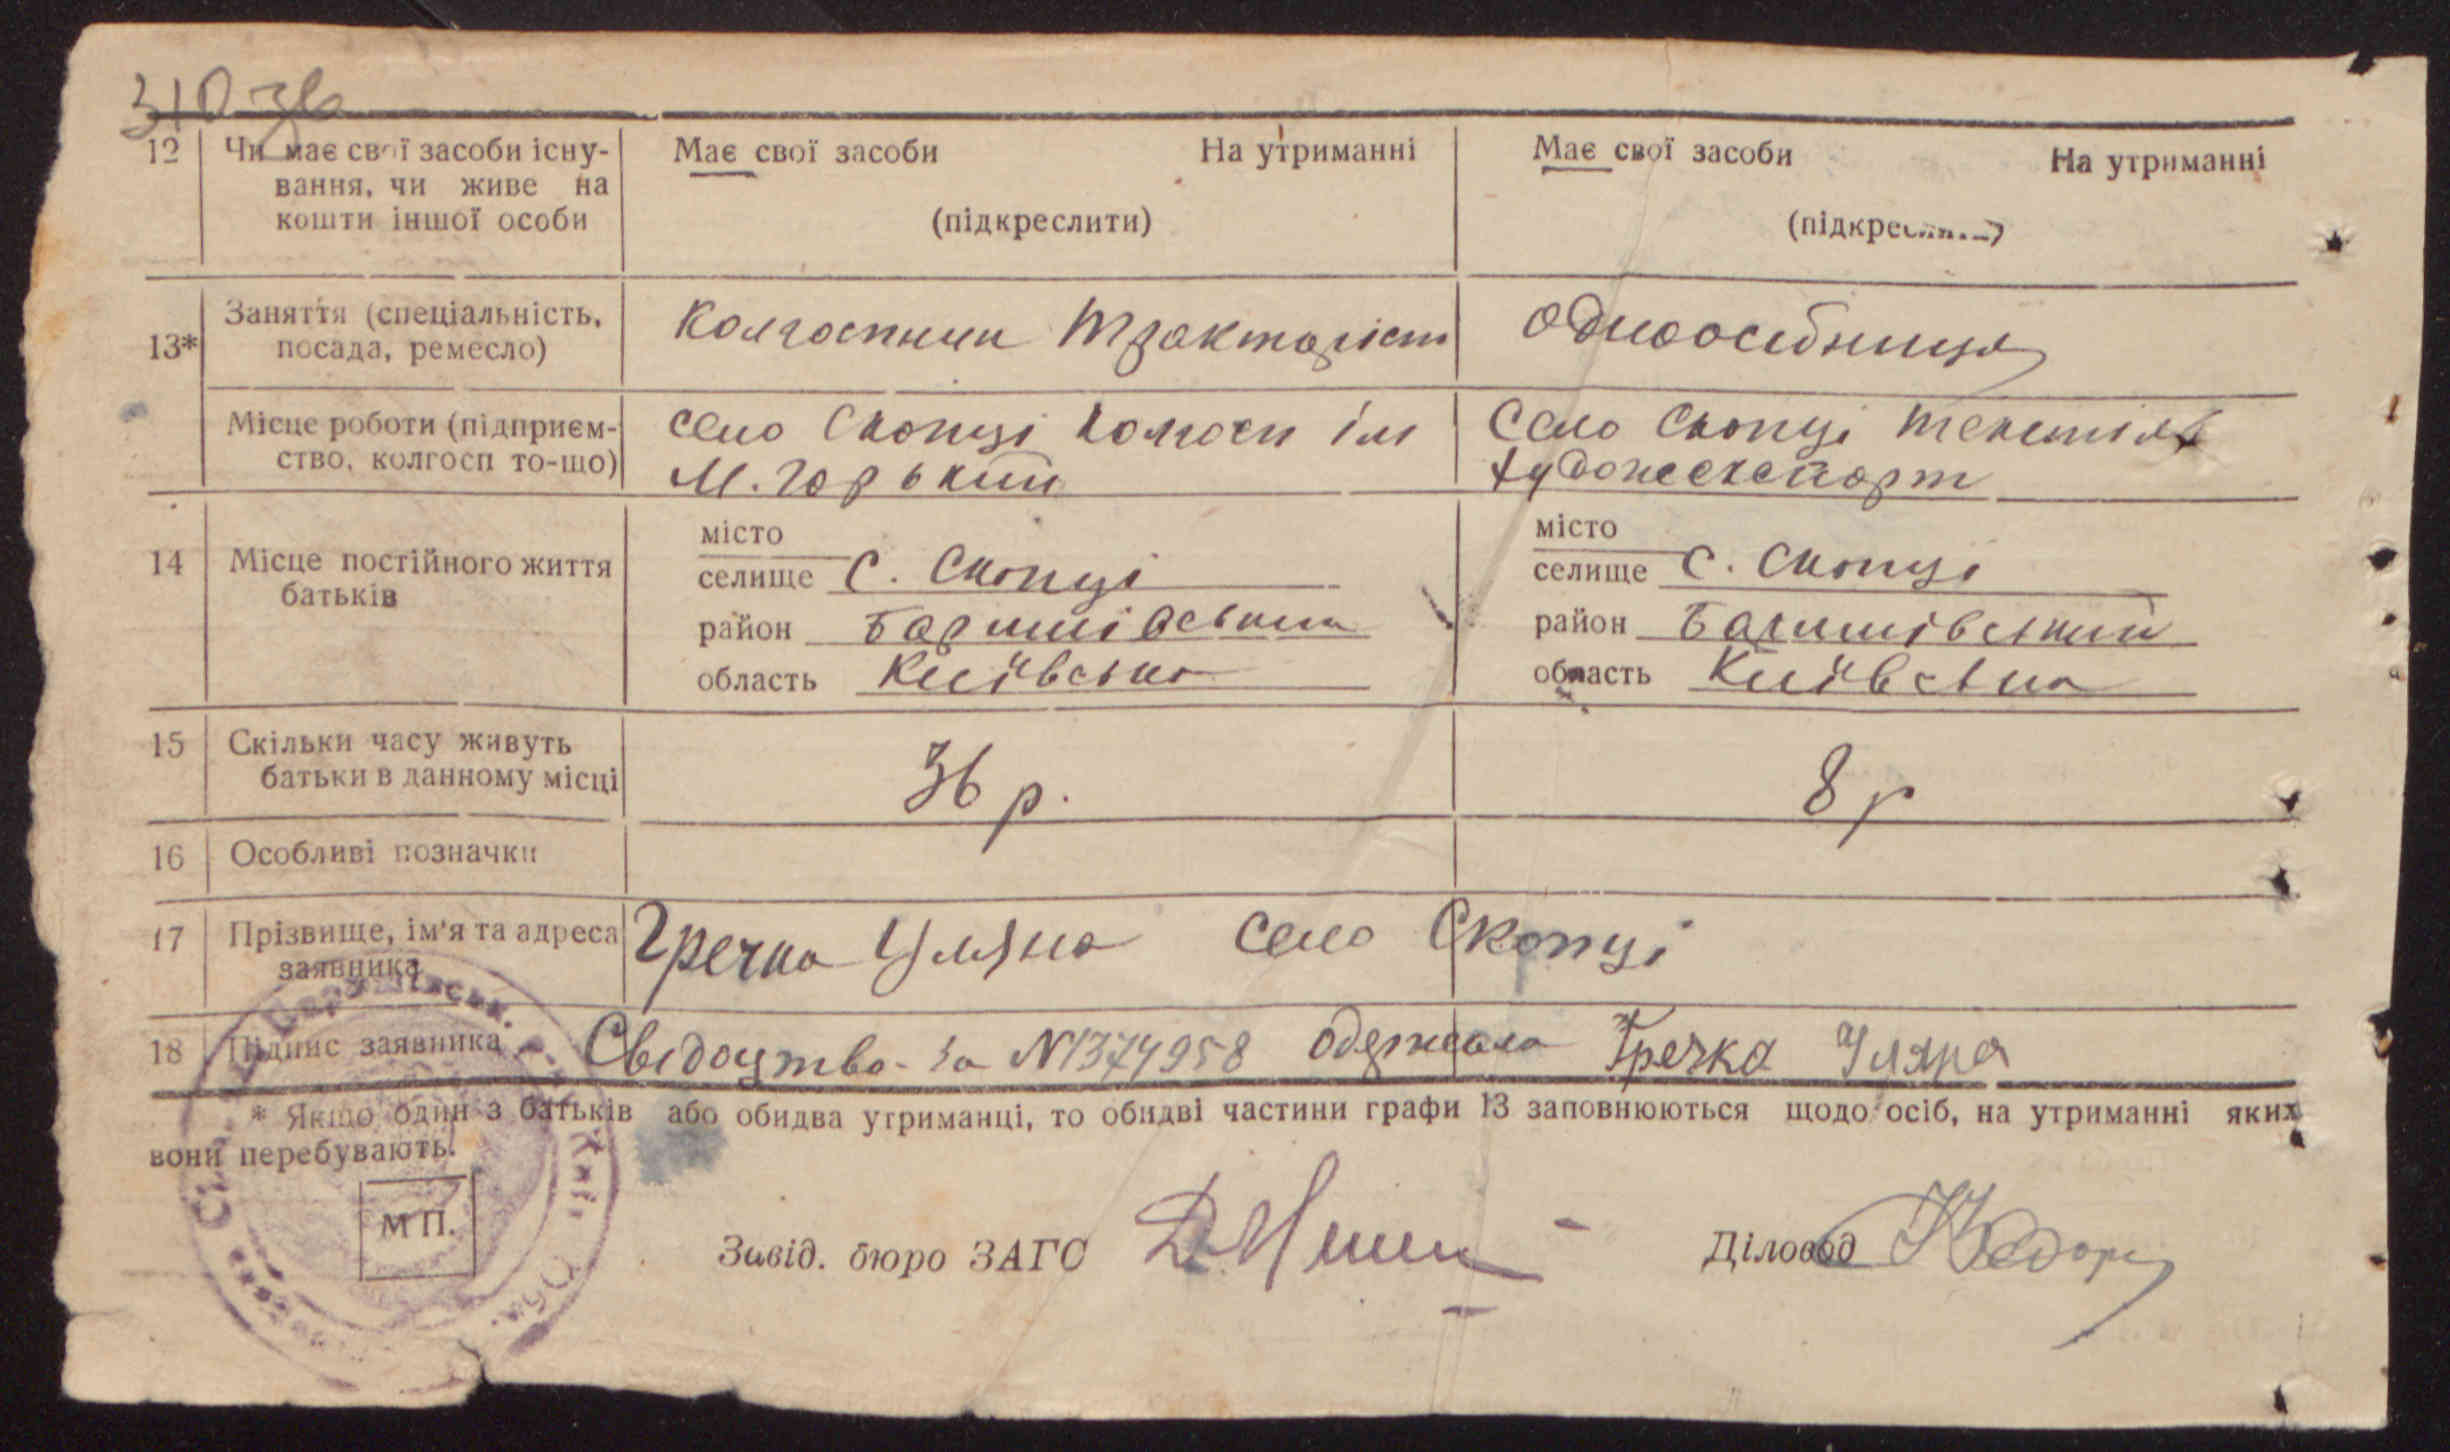 310 зв
12 Чи має свої засоби існу- Має свої засоби На утриманні Має свої засоби На утриманні
вання, чи живе на
кошти іншої особи (підкреслити) (підкреслити)
13* Заняття (спеціальність, Колгоспник тракторіст одноосібниця
посада, ремесло)
Місце роботи (підприєм- село Скопці колгосп ім село Скопці текстіль
ство, колгосп то-що) М. Горький художекспорт
14 Місце постійного життя місто місто
батьків селище с. Скопці селище с. Скопці
район Баришівський район Баришівський
область Київська область Київська
15 Скільки часу живуть 36 р. 8 р
батьки в данному місці
16 Особливі позначки
17 Прізвище, ім'я та адреса Гречка Уляна село Скопці
заявника
18 Підпис заявника Свідоцтво за N1374958 одержала Гречка Уляна
* Якщо один з батьків або обидва утриманці, то обидві частини графи 13 заповнюються щодо осіб, на утриманні яких
вони перебувають.
М П.
Завід. бюро ЗАГС Діловод